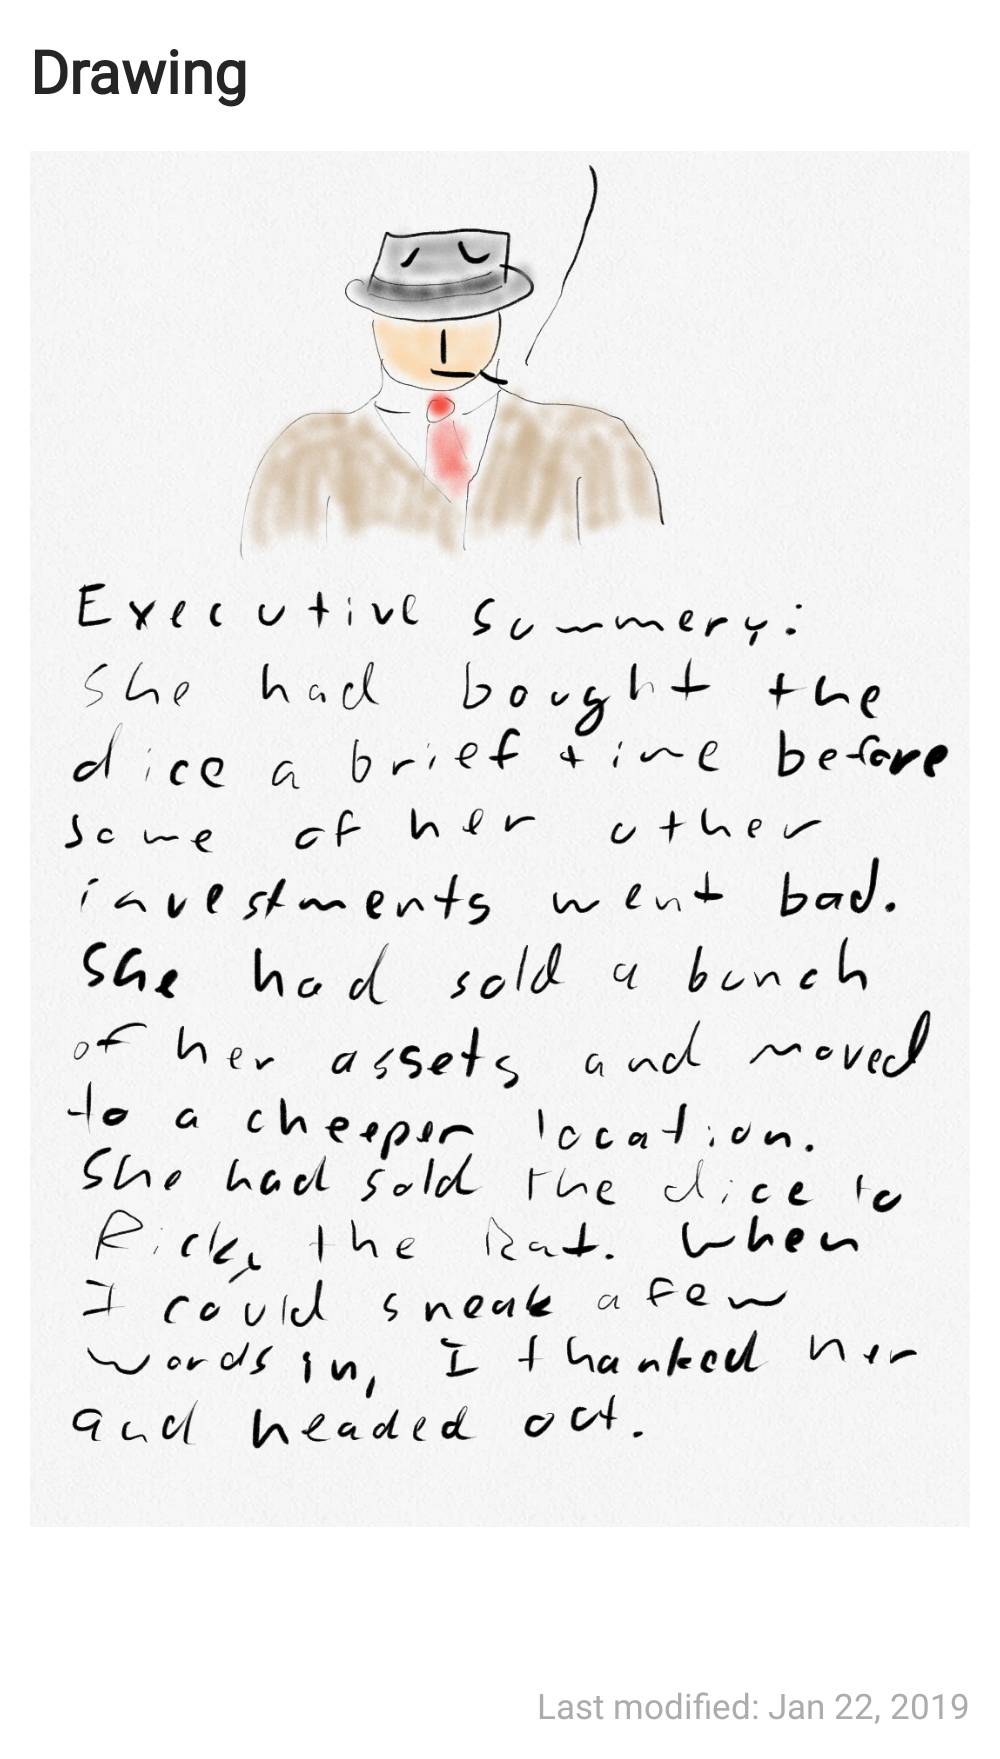 Drawing
Executive summery:
She had bought the
dice a brief time before
some of her other
investments went bad.
She had sold a bunch
of her assets and moved
to a cheeper location.
She had sold the dice to
Ricky the Rat. When
I could sneak a few
words in, I thanked her
and headed out.
Last modified: Jan 22, 2019